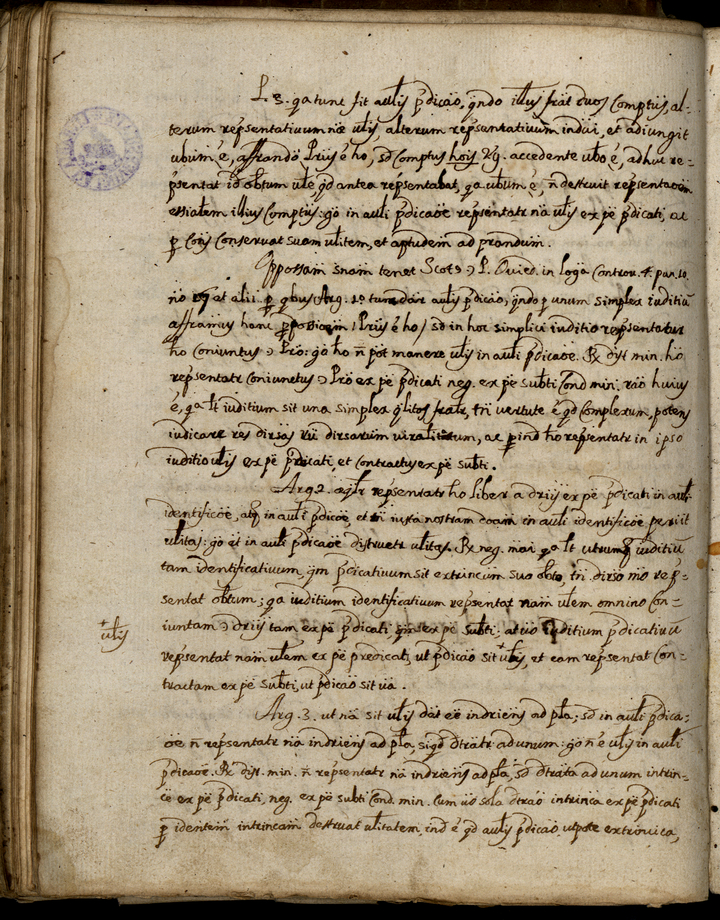 P. 3. qa tunc fit aulis pdicao, qndo illius frat duos Comptus, al-
terum repsentativum nae ulis, alterum repsentativum indui, et adiungit
ubum è, affrando Prus è ho, sd Comptus hois Vg. accedente ubo è, adhuc re=
psentat id obtum ule, qd antea repsentabat, qa ubum è, ñ destruit repsentaoem
essialem illius Comptus: go in auli pdicaoe repsentatr na ulis ex pe pdicati, ac
p Cons Conservat suam ulitem, et aptudem ad prandum.
Oppossam snam tenet Scots P. Ovied. in Loga Controv. 4. pun. 10.
no et alii. p qbus Arg. 1º tum dar aulis pdicao, qndo p unum simplex iuditiu
afframus hanc ppossioem Prus è ho / sd in hoc simplici iuditio repsentatur
ho Coniuntus Pro: go ho ñ pot manere ulis in auli pdicaoe. R dist min. ho
repsentatr Coniunctus Pro ex pe pdicati neg. ex pe subti Cond min. rao huius
è, qa lt iuditium sit una simplex qlitas fratr, tn vertute è qd Complexum, potens
iudicare res dirsas ru dirsarum, ac p ind ho repsentatr in ipso
iuditio ulis ex pe pdicati, et Contractus ex pe subti.
Arg. 2. aeqlr repsentatr ho liber a driis ex pe pdicati in auli
identificoe, atq in auli pdicoe, et iuxta nostram doam in auli identificoe periit
ulitas: go et in auli pdicaoe distruetr ulitas. R neg. mai qa lt utrumq iuditiu
tam identificativum, qm pdicativum sit extrincum suo obto, tn dirso mo rep=
sentat obtum; qa iuditium identificativum repsentat nam ulem omnino Con=
iuntam driis tam ex pe pdicati qm ex pe subti; at uo iuditium pdicativu
repsentat nam ulem ex pe predicati, ut pdicao sit + ulis, et eam repsentat Con=
tractam ex pe subti, ut pdicao sit ua.
+ ulis
Arg. 3. ut na sit ulis dat eè indriens ad pla; sd in auli pdica=
oe ñ repsentatr na indriens ad pla, siqd dtratr ad unum: go ñ è ulis in auli
pdicaoe. R dist. min. ñ repsentatr na indriens ad pla, sd dtrata ad unum intrin=
ce ex pe pdicati, neg. ex pe subti Cond. min. Cum uo sola dtrao intrinca ex pe pdicati
p identem intrincam destruat ulitatem, ind è qd aulis pdicao, utpote extrinsica,